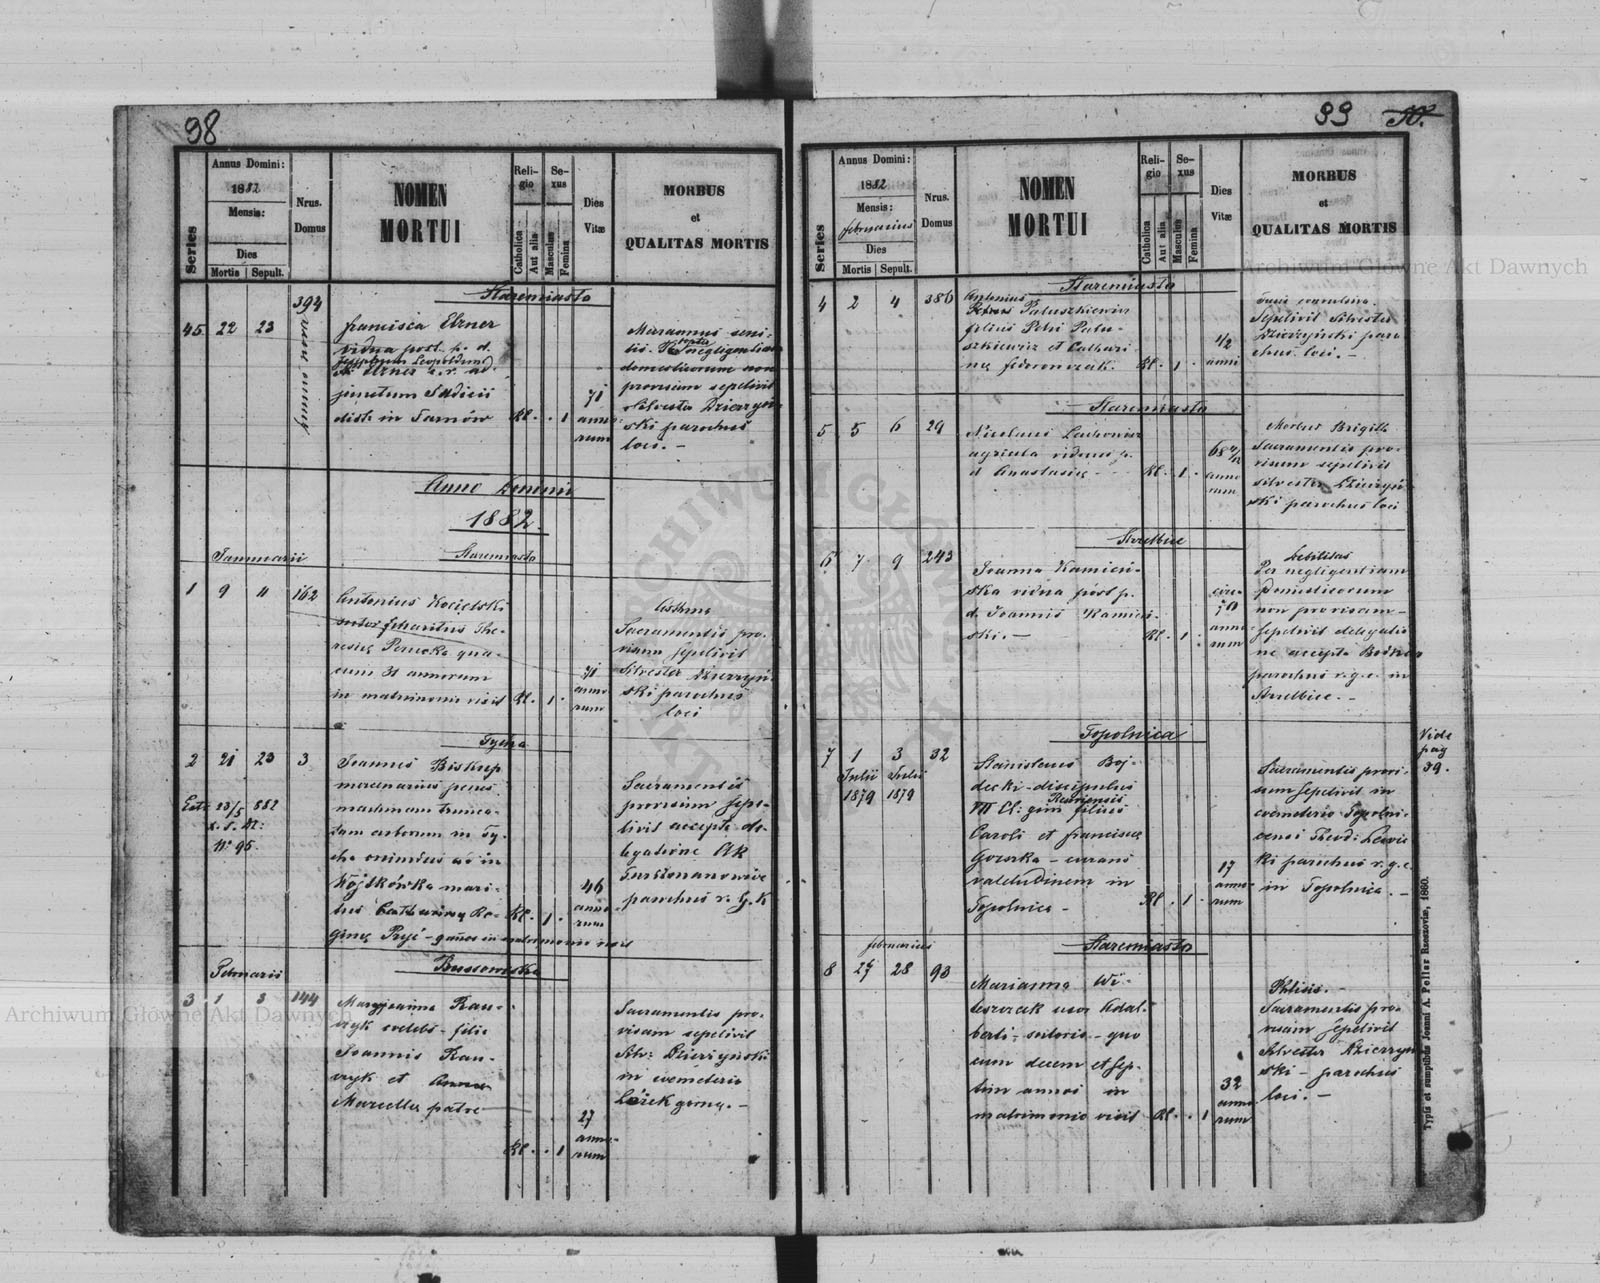 98
Annus Domini:
1882
Mensis:
Dies
Mortis Sepult.
Series
Nrus. Domus
NOMEN MORTUI
Religio
Catholica
Aut alia
Sexus
Masculus
Femina
Dies Vitæ
MORBUS
et
QUALITAS MORTIS
Staremiasto
45 22 23 394
francisca Ebner
vidua post p. d.
Josephum Leopoldum
Ebner c. r. ad-
junctum Judicii
distr. in Tarnów
Rl. 1
71 anno-
rum
Marasmus seni-
lis. negligentiam
domesticorum non
provisam sepelivit
Silvester Dzierzyń-
ski parochus
loci. -
Anno Domini
1882
Januarii
Staremiasto
1 9 11 162
Antonius Kocielski
sutor maritus The-
resiæ Perucka qua-
cum 31 annorum
in matrimonio vixit
Rl. 1
71
anno
rum
Asthma
Sacramentis pro-
visum sepelivit
Silvester Dzierzyń-
ski parochus
loci
Tycha
2 21 23 3
Extr. 23/5 882
Nº 95.
Joannes Biskup
mercenarius penes
machinam trunca-
tam arborum in Ty-
cha oriundus
Wójtkówka mari-
tus Catharinæ Re-
ginæ - 9 annos in matrimonio vixit
Rl. 1
46
anno
rum
Sacramentis
provisum sepe-
livit accepta de-
legatione
parochus r. g. k
Februarii
Bussowisko
3 1 3 144
Maryanna Kau-
czyk coelebs - filia
Joannis Kau-
czyk et Anna
Marcella patre
Rl. 1
27
anno-
rum
Sacramentis pro-
visam sepelivit
Silv: Dzierzyński
in coemeterio
górną. -
99 50.
Annus Domini:
1882
Mensis:
februarius
Dies
Mortis Sepult.
Series
Nrus. Domus
NOMEN MORTUI
Religio
Catholica
Aut alia
Sexus
Masculus
Femina
Dies Vitæ
MORBUS
et
QUALITAS MORTIS
Staremiasto
4 2 4 386
Antonius
Paluszkiewicz
filius Petri Palu-
szkiewicz et Cathari-
næ fedoronczak.
Rl. 1
1/2
anni
Sepelivit Silvester
Dzierzyński paro
chus loci. -
Staremiasto
5 5 6 29
Nicolaus
agricola viduus p.
d. Anastasiæ
Rl. 1
68
anno
rum
Morbus Brigth
Sacramentis pro-
visum sepelivit
Silvester Dzierzyń-
ski parochus loci
Strzelbice
6 7 9 243
Joanna Kamień-
ska vidua post p.
d. Joannis Kamień-
ski. -
Rl. 1
circa
70
anno
rum
Debilitas
Per negligentiam
Domesticorum
non provisam -
sepelivit delegatio
ne accepta
parochus r. g. c. in
Strzelbice. -
Topolnica
7 1 3 32
Julii Julii
1879 1879
Stanislaus Boj-
decki - discipulus
VII Cl: gim
filius
Caroli et franciscæ
Gourska - curans
valetudinem in
Topolnica -
Rl. 1
17
anno-
rum
Sacramentis provi-
sum sepelivit in
coemeterio Topolni-
censi Theod:
ki parochus r. g. c.
in Topolnica. -
Vide
pag
39.
februarius
Staremiasto
8 27 28 93
Marianna Wi-
leszczak uxor Adal-
berti - sutoris - quo
cum decem et sep-
tem annos in
matrimonio vixit
Rl. 1
32
anno-
rum
Phtisis. -
Sacramentis pro-
visam sepelivit
Silvester Dzierzyń-
ski - parochus
loci. -
Typis et sumptibus Joanni A. Pellar Rzeszoviæ, 1860.
Archiwum Główne Akt Dawnych
Archiwum Główne Akt Dawnych